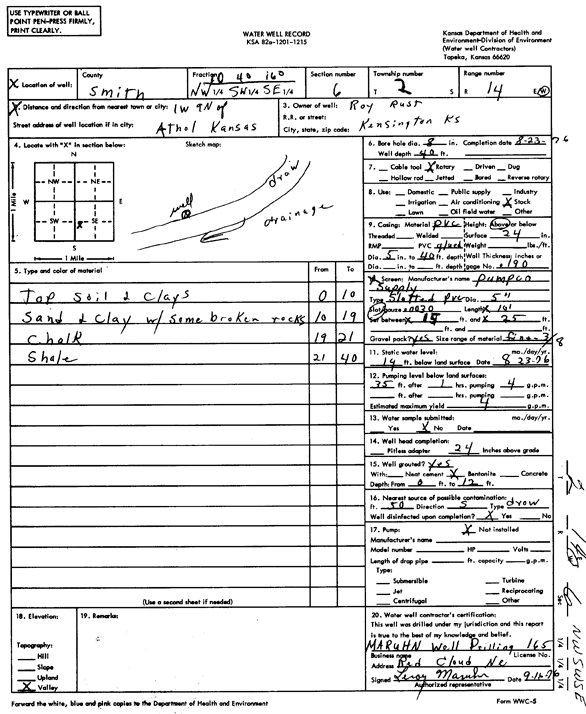 USE TYPEWRITER OR BALL
POINT PEN-PRESS FIRMLY,
PRINT CLEARLY.
WATER WELL RECORD
KSA 82a-1201-1215
Kansas Department of Health and
Environment-Division of Environment
(Water well Contractors)
Topeka, Kansas 66620
X Location of well: County Smith Fraction 10 40 160 NW 1/4 SW 1/4 SE 1/4 Section number 6 Township number T 2 S Range number R 14 E/W
X. Distance and direction from nearest town or city: 1W 9N of
Street address of well location if in city: Athol Kansas
3. Owner of well: Roy Rust
R.R. or street:
City, state, zip code: Kensington KS
4. Locate with "X" in section below:
Sketch map:
N
NW NE
W E
SW SE
X
S
1 Mile
1 Mile
well
draw
drainage
6. Bore hole dia. 8 in. Completion date 8-23-76
Well depth 40 ft.
7. Cable tool X Rotary Driven Dug
Hollow rod Jetted Bored Reverse rotary
8. Use: Domestic Public supply Industry
Irrigation Air conditioning X Stock
Lawn Oil field water Other
9. Casing: Material PVC Height: Above or below
Threaded Welded Surface 24 in.
RMP PVC glued Weight lbs./ft.
Dia. 5 in. to 40 ft. depth Wall Thickness: inches or
Dia. in. to ft. depth gage No. .190
X Screen: Manufacturer's name Pumpco
Supply
Type Slotted PVC Dia. 5"
Slot/gauze .0030 Length X 10'
Set between X 15 ft. and X 25 ft.
ft. and ft.
Gravel pack? Yes Size range of material fine - 3/8
5. Type and color of material From To
Top Soil & Clays 0 10
Sand & Clay w/ some broken rocks 10 19
Chalk 19 21
Shale 21 40
11. Static water level: mo./day/yr.
14 ft. below land surface Date 8 23-76
12. Pumping level below land surfaces:
35 ft. after 1 hrs. pumping 4 g.p.m.
ft. after hrs. pumping g.p.m.
Estimated maximum yield 4 g.p.m.
13. Water sample submitted: mo./day/yr.
Yes X No Date
14. Well head completion:
Pitless adapter 24 Inches above grade
15. Well grouted? Yes
With: Neat cement X Bentonite Concrete
Depth: From 0 ft. to 12 ft.
16. Nearest source of possible contamination:
ft. 50 Direction S Type draw
Well disinfected upon completion? X Yes No
17. Pump: X Not installed
Manufacturer's name
Model number HP Volts
Length of drop pipe ft. capacity g.p.m.
Type:
Submersible Turbine
Jet Reciprocating
Centrifugal Other
(Use a second sheet if needed)
18. Elevation:
19. Remarks:
Topography:
Hill
Slope
Upland
X Valley
20. Water well contractor's certification:
This well was drilled under my jurisdiction and this report
is true to the best of my knowledge and belief.
MARUHN Well Drilling 165
Business name License No.
Address Red Cloud Ne
Signed Leroy Maruhn Date 9-11-76
Authorized representative
Forward the white, blue and pink copies to the Department of Health and Environment
Form WWC-5
T 2 R 14W Sec 6 NW SW SE
1/4 1/4 1/4